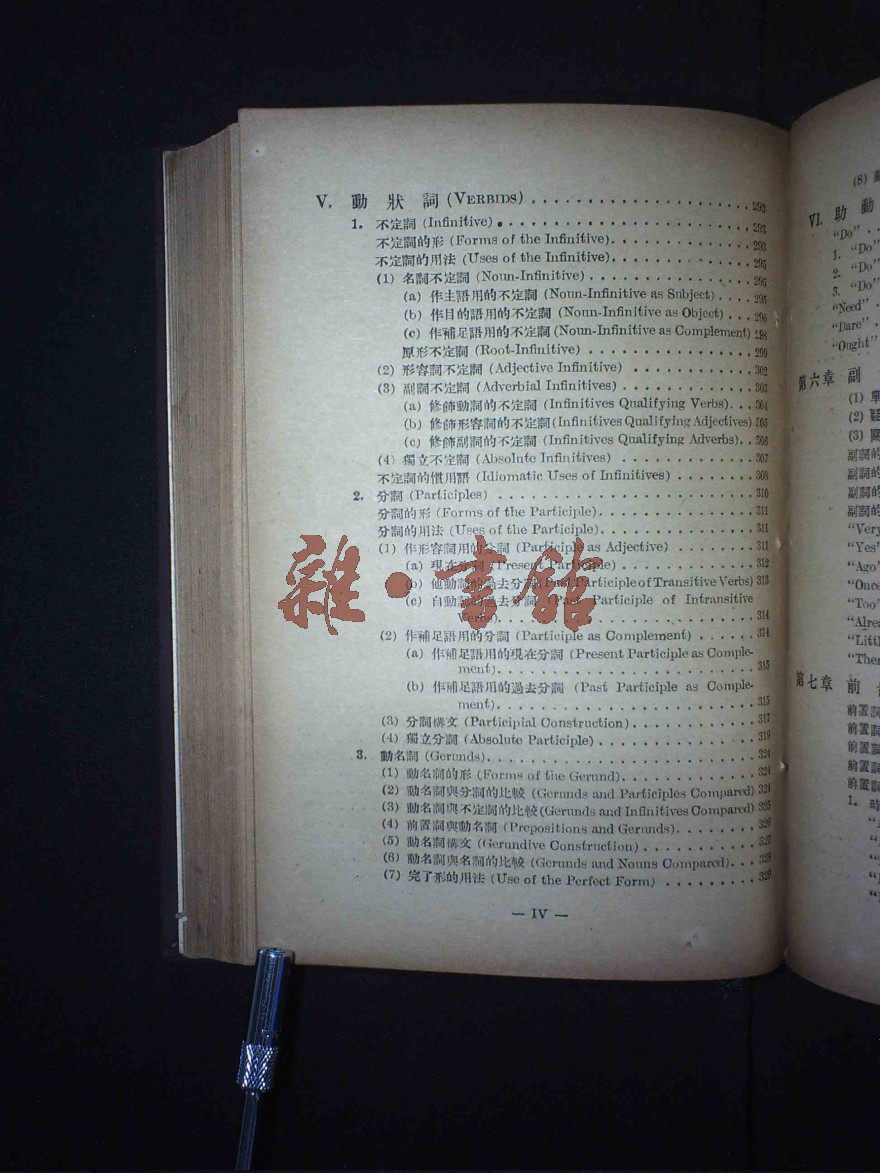 V. 動狀詞 (VERBIDS) . . . . . . . . . . . . . . . . . . . . 293
1. 不定詞 (Infinitive) . . . . . . . . . . . . . . . . . . . . 293
不定詞的形 (Forms of the Infinitive). . . . . . . . . . . . . 293
不定詞的用法 (Uses of the Infinitive). . . . . . . . . . . . . 295
(1) 名詞不定詞 (Noun-Infinitive) . . . . . . . . . . . . . . 295
(a) 作主語用的不定詞 (Noun-Infinitive as Subject) . . . . 295
(b) 作目的語用的不定詞 (Noun-Infinitive as Object) . . . 296
(c) 作補足語用的不定詞 (Noun-Infinitive as Complement) 298
原形不定詞 (Root-Infinitive) . . . . . . . . . . . . . . 299
(2) 形容詞不定詞 (Adjective Infinitive) . . . . . . . . . . . 302
(3) 副詞不定詞 (Adverbial Infinitives) . . . . . . . . . . . 303
(a) 修飾動詞的不定詞 (Infinitives Qualifying Verbs). . . 304
(b) 修飾形容詞的不定詞 (Infinitives Qualifying Adjectives) 305
(c) 修飾副詞的不定詞 (Infinitives Qualifying Adverbs). . 306
(4) 獨立不定詞 (Absolute Infinitives) . . . . . . . . . . . . 307
不定詞的慣用語 (Idiomatic Uses of Infinitives) . . . . . . . 308
2. 分詞 (Participles) . . . . . . . . . . . . . . . . . . . . 310
分詞的形 (Forms of the Participle). . . . . . . . . . . . . . 311
分詞的用法 (Uses of the Participle). . . . . . . . . . . . . . 311
(1) 作形容詞用的分詞 (Participle as Adjective) . . . . . . . 311
(a) 現在分詞 (Present Participle) . . . . . . . . . . . . 312
(b) 他動詞的過去分詞 (Past Participle of Transitive Verbs) 313
(c) 自動詞的過去分詞 (Past Participle of Intransitive
Verbs). . . . . . . . . . . . . . . . . . . . . . . 314
(2) 作補足語用的分詞 (Participle as Complement) . . . . . . 314
(a) 作補足語用的現在分詞 (Present Participle as Comple-
ment). . . . . . . . . . . . . . . . . . . . . . . 315
(b) 作補足語用的過去分詞 (Past Participle as Comple-
ment). . . . . . . . . . . . . . . . . . . . . . . 315
(3) 分詞構文 (Participial Construction). . . . . . . . . . . 317
(4) 獨立分詞 (Absolute Participle) . . . . . . . . . . . . . . 319
3. 動名詞 (Gerunds). . . . . . . . . . . . . . . . . . . . . 324
(1) 動名詞的形 (Forms of the Gerund). . . . . . . . . . . . 324
(2) 動名詞與分詞的比較 (Gerunds and Participles Compared) 324
(3) 動名詞與不定詞的比較 (Gerunds and Infinitives Compared) 325
(4) 前置詞與動名詞 (Prepositions and Gerunds). . . . . . . 326
(5) 動名詞構文 (Gerundive Construction) . . . . . . . . . . 327
(6) 動名詞與名詞的比較 (Gerunds and Nouns Compared). . . 328
(7) 完了形的用法 (Use of the Perfect Form) . . . . . . . . 329
— IV —
雜·書館
(8)
VI. 助動
"Do" . .
1. "Do"
2. "Do"
3. "Do"
"Need" .
"Dare" .
"Ought"
第六章 副
(1) 單
(2) 疑
(3) 關
副詞的
副詞的
副詞的
副詞的
"Very
"Yes"
"Ago"
"Once
"Too"
"Alrea
"Littl
"Ther
第七章 前
前置詞
前置詞
前置詞
前置詞
前置詞
1. 時